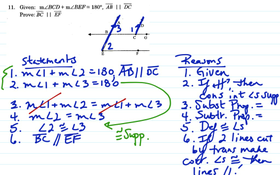 11. Given: m∠BCD + m∠BEF = 180°, AB || DC
Prove: BC || EF
Statements
1. m∠1 + m∠2 = 180, AB || DC
2. m∠1 + m∠3 = 180
3. m∠1 + m∠2 = m∠1 + m∠3
4. m∠2 = m∠3
5. ∠2 ≅ ∠3
6. BC // EF
≅ Supp.
Reasons
1. Given
2. If // then
cons int ∠s supp
3. Subst Prop. =
4. Subtr. Prop. =
5. Def ≅ ∠s
6. If 2 lines cut
by trans made
corr. ∠s ≅ then
lines //.